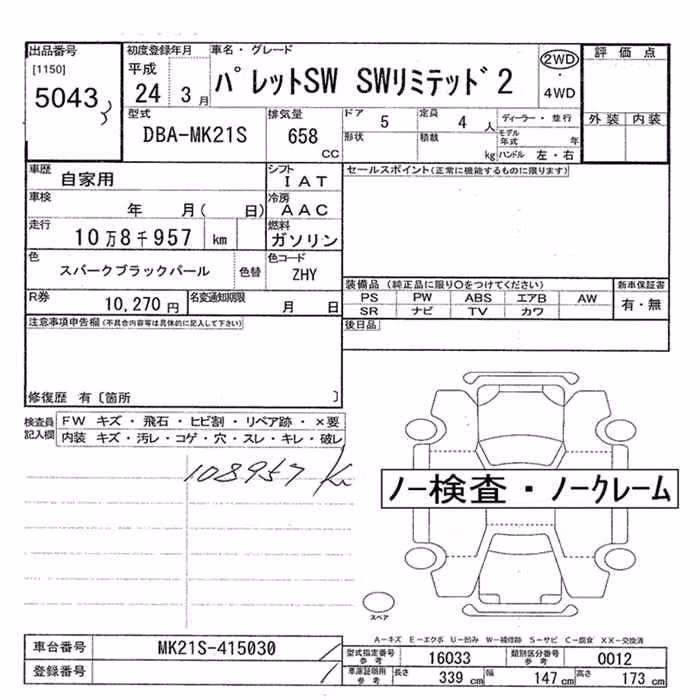 出品番号 初度登録年月 車名・グレード 評価点
[1150] 平成 パレットSW SWリミテッド2 2WD
5043 24 3月 ・ 4WD 外装 内装
型式 排気量 ドア 定員 ディーラー・並行
DBA-MK21S 658 CC 5 4人 モデル年式 年
形状 積載 kg ハンドル 左・右
車歴 自家用 シフト IAT セールスポイント(正常に機能するものに限ります)
車検 年 月( 日) 冷房 AAC
走行 10万8千957 km 燃料 ガソリン
色 スパークブラックパール 色替 色コード ZHY
装備品(純正品に限り○をつけてください) 新車保証書
PS PW ABS エアB AW 有・無
R券 10,270円 名変通知期限 月 日 SR ナビ TV カワ
注意事項申告欄(不具合内容等は具体的に記入して下さい) 後日品
修復歴 有〔箇所 〕
検査員記入欄 FW キズ・飛石・ヒビ割・リペア跡・×要
内装 キズ・汚レ・コゲ・穴・スレ・キレ・破レ
108957 K
ノー検査・ノークレーム
スペア
A−キズ E−エクボ U−凹み W−補修跡 S−サビ C−腐食 XX−交換済
車台番号 MK21S-415030 型式指定番号 参考 16033 類別区分番号 参考 0012
登録番号 車庫証明用 参考 長さ 339 cm 幅 147 cm 高さ 173 cm